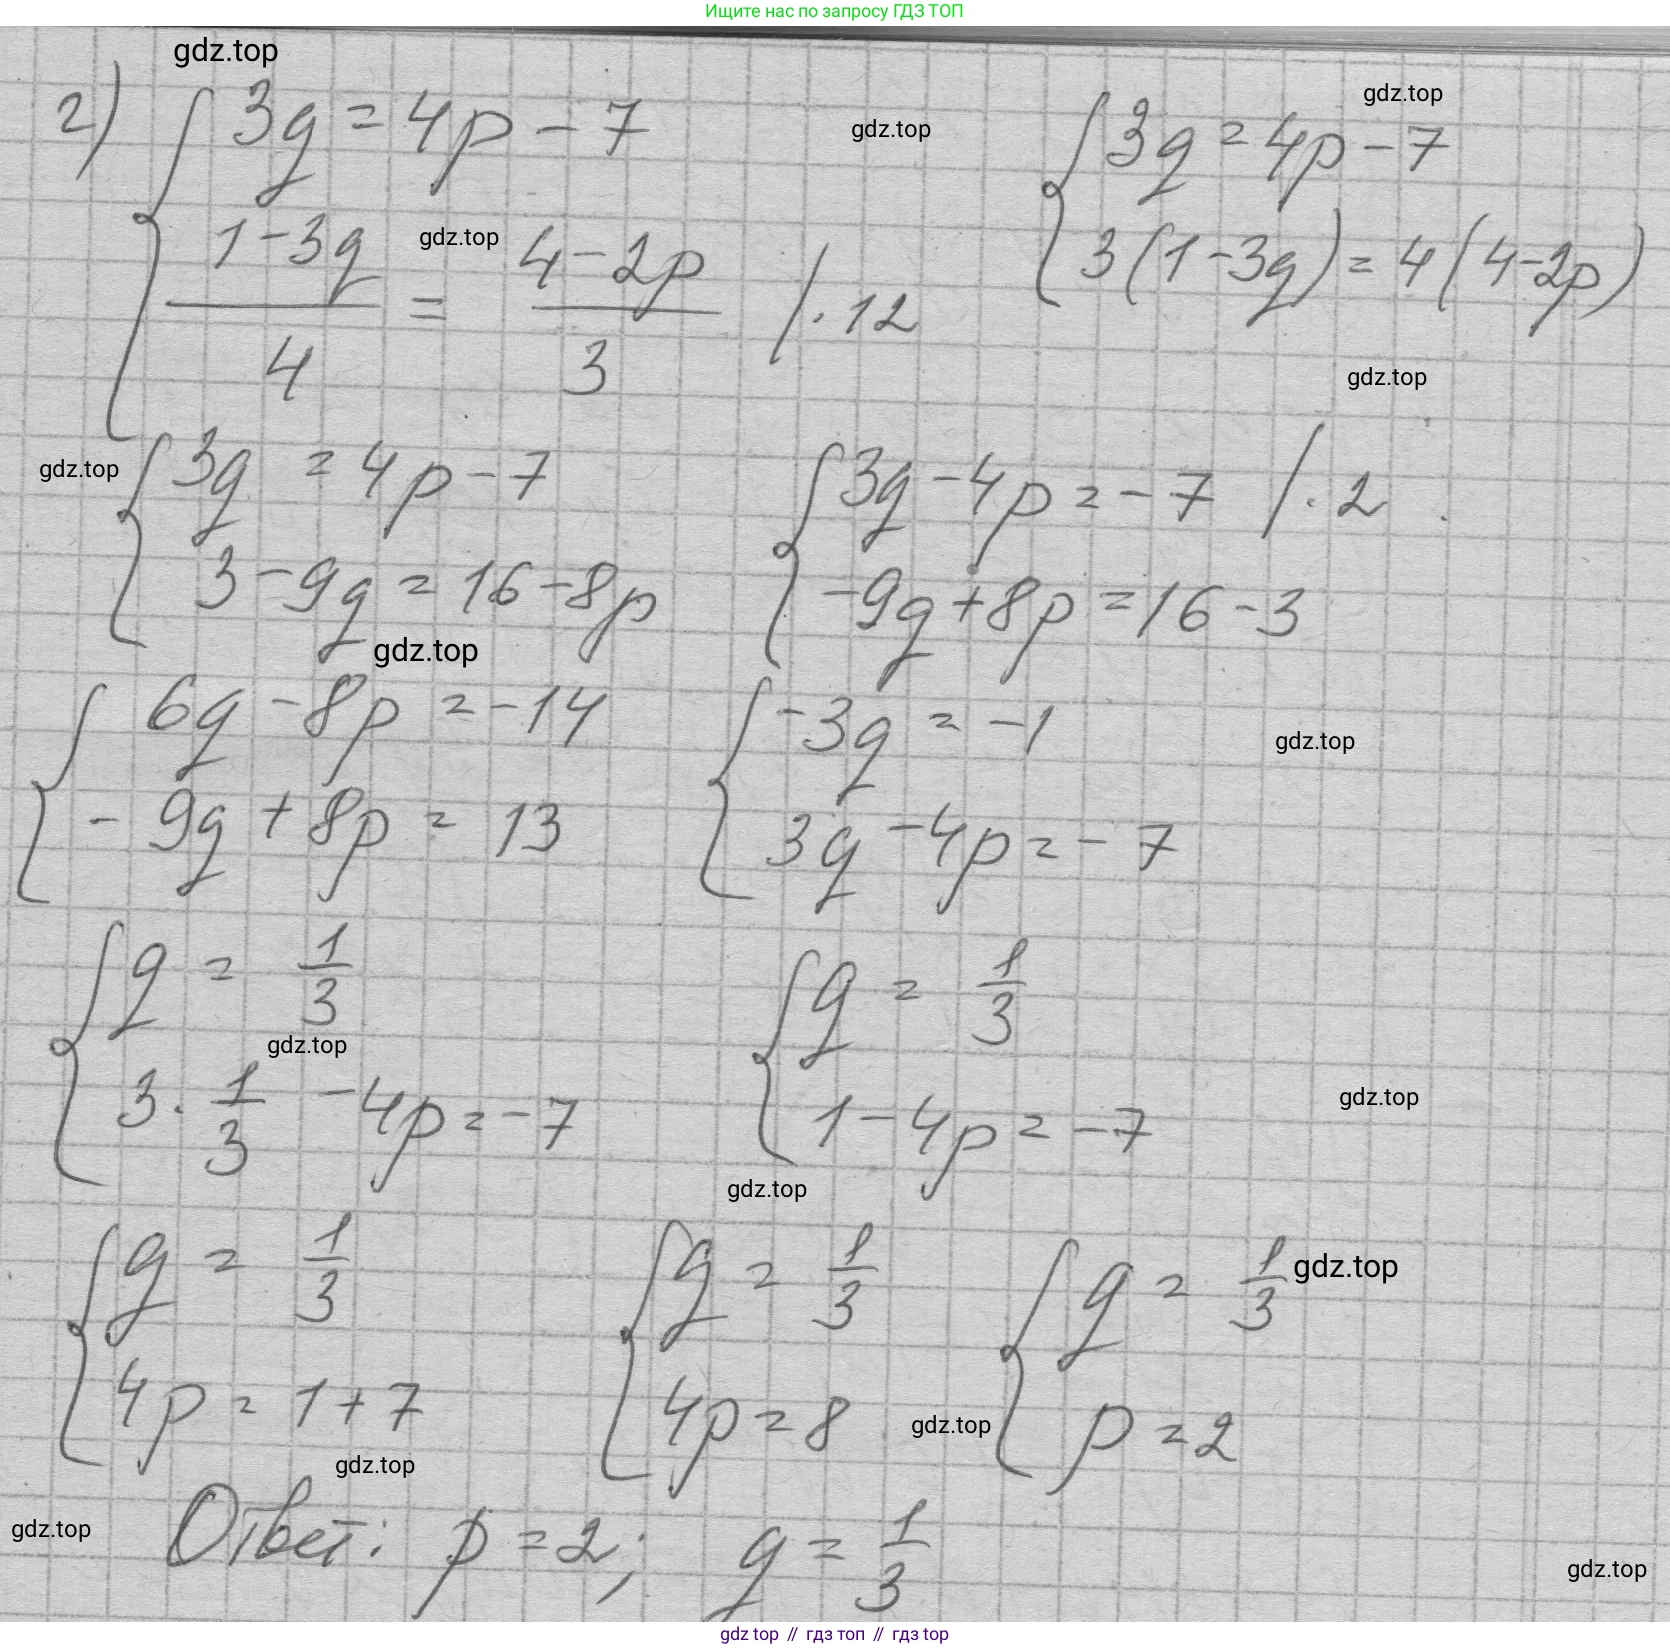 Ищите нас по запросу ГДЗ ТОП
gdz.top
2) { 3q = 4p - 7
gdz.top
gdz.top
{ 3q = 4p - 7
(1 - 3q)/4 = (4 - 2p)/3 / · 12
gdz.top
3(1 - 3q) = 4(4 - 2p)
gdz.top
gdz.top
{ 3q = 4p - 7
3 - 9q = 16 - 8p
{ 3q - 4p = -7 / · 2
-9q + 8p = 16 - 3
gdz.top
{ 6q - 8p = -14
-9q + 8p = 13
{ -3q = -1
3q - 4p = -7
gdz.top
{ q = 1/3
3 · 1/3 - 4p = -7
gdz.top
{ q = 1/3
1 - 4p = -7
gdz.top
gdz.top
{ q = 1/3
4p = 1 + 7
{ q = 1/3
4p = 8
{ q = 1/3
p = 2
gdz.top
gdz.top
gdz.top
gdz.top
Ответ: p = 2; q = 1/3
gdz.top
gdz top // гдз топ // гдз top